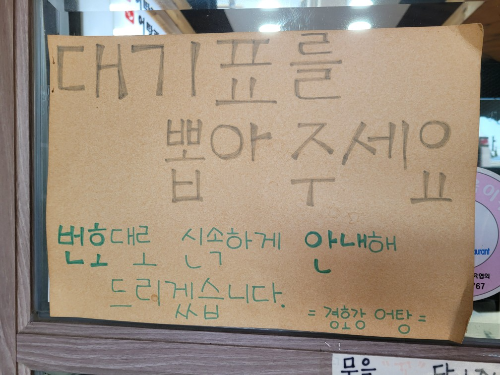 대기표를
뽑아 주세요
번호대로 신속하게 안내해
드리겠습니다.
= 경호강 어탕 =
문을